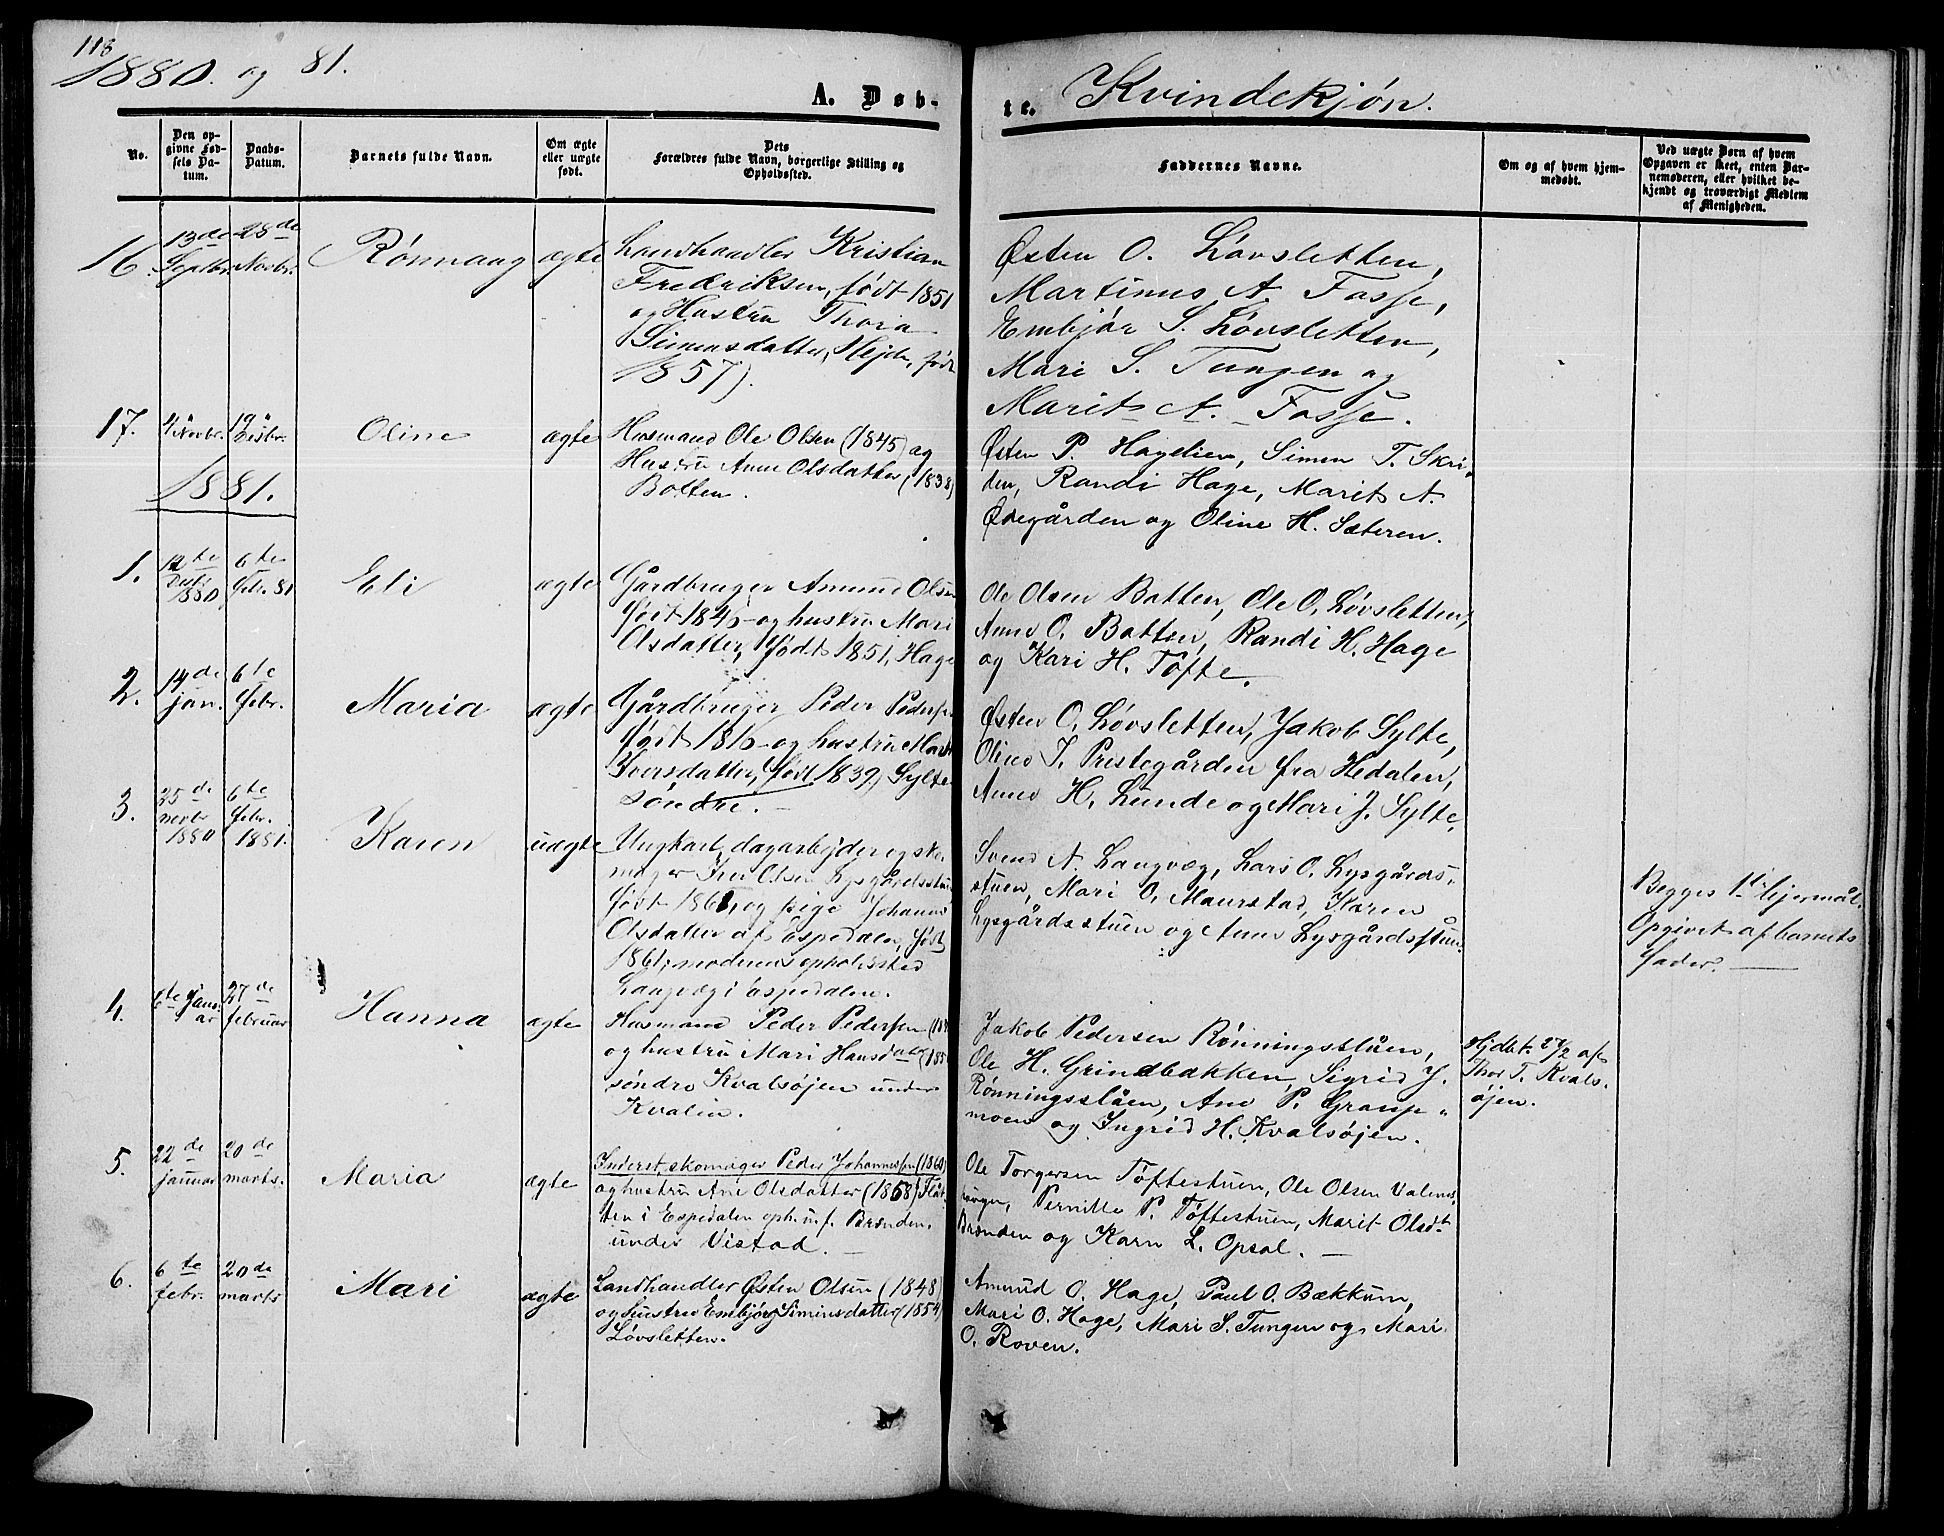 118
1880. og 81.
A. Døb-
te. Kvindekjøn.
No.
Den op-
givne Fød-
sels Da-
tum.
Daabs-
Datum.
Barnets fulde Navn.
Om ægte
eller uægte
født.
Dets
Forældres fulde Navn, borgerlige Stilling og
Opholdssted.
Faddernes Navne.
Om og af hvem hjem-
medøbt.
Ved uægte Børn af hvem
Opgaven er skeet, enten Bar-
nemoderen, eller hvilket be-
kjendt og troværdigt Medlem
af Menigheden.
16.
13de
Septbr.
28de
Novbr.
Rønnaug
ægte
Landhandler Kristian
Fredriksen, født 1851
og Hustru Thora
Simensdatter, født
1857).
Østen O. Løvsletten,
Martinus A. Fosse,
Embjør S. Løvsletten,
Mari S. Tungen og
Marit A. Fosse.
17.
4 Novbr.
19 Desbr.
Oline
ægte
Husmand Ole Olsen (1845) og
Hustru Anne Olsdatter (1838)
Botten.
Østen P. Hagelien, Simen T. Skri-
den, Randi Hage, Marit A.
Ødegården og Oline H. Sæteren.
1881.
1.
12te
Desbr.
1880
6te
Febr. 81
Eli
ægte
Gårdbruger Amund Olsen
født 1846 og hustru Mari
Olsdatter, født 1851, Hage
Ole Olsen Botten, Ole O. Løvsletten,
Anne O. Botten, Randi H. Hage
og Kari H. Tofte.
2.
14de
jan.
6te
Febr.
Maria
ægte
Gårdbruger Peder Pedersen
født 1816 og hustru Marit
Iversdatter, født 1839, Sylte
søndre.
Østen O. Løvsletten, Jakob Sylte,
Oline I. Prestegården fra Hedalen,
Anne H. Lunde og Mari J. Sylte.
3.
25de
novbr
1880
6te
febr.
1881.
Karen
uægte
Ungkarl, dagarbejder og sko-
mager Iver Olsen Lysgårdsstuen
født 1861, og pige Johanne
Olsdatter af Espedalen, født
1861, moderens opholdssted
Langvæg i Espedalen.
Svend A. Langvæg, Lars O. Lysgårds-
stuen, Mari O. Maurstad, Karen
Lysgårdsstuen og Anne Lysgårdsstuen.
Begges 1te lejermål.
Opgivet af barnets
fader.
4.
6te Janu
ar
27de
februar
Hanna
ægte
Husmand Peder Pedersen
og hustru Mari Hansdatter
søndre Kvalsøjen under
Kvalin.
Jakob Pedersen Rønningsslåen,
Ole H. Grindbakken, Sigrid J.
Rønningsslåen, Ane P. Graupe-
moen og Ingrid H. Kvalsøjen.
Hjdbt. 27/2 af
Thor T. Kvals-
øjen.
5.
22de
januar
20de
marts.
Maria
ægte
Inderst, skomager Peder Johannessen (1860)
og hustru Ane Olsdatter (1858) Flåt-
ten i Espedalen oph. u. f. Brænden.
under Vistad.
Ole Torgersen Toftestuen, Ole Olsen
Pernille P. Toftestuen, Marit Olsdt
Brænden og Karn L. Opsal.
6.
6te
febr.
20de
marts
Mari
ægte
Landhandler Østen Olsen (1848)
og hustru Embjørg Simensdatter (1854)
Løvsletten.
Amund O. Hage, Paul O. Bækkum,
Mari O. Hage, Mari S. Tungen og Mari
O. Roven.